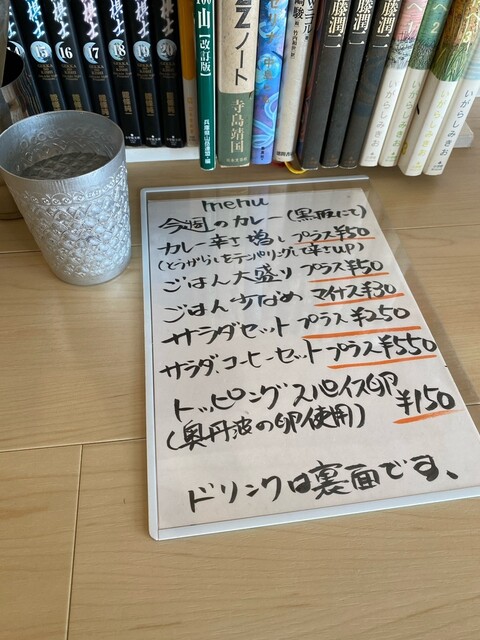 15
16
17
18
19
20
山
【改訂版】
兵庫県山岳連盟・編
ノート
寺島靖国
藤潤二
藤潤二
いがらしみきお
いがらしみきお
いがらしみきお
menu
今週のカレー(黒板にて)
カレー辛さ増し プラス¥50
(とうがらしをテンパリングして辛さup)
ごはん大盛り プラス¥50
ごはん少なめ マイナス¥30
サラダセット プラス¥250
サラダ、コーヒーセット プラス¥550
トッピング スパイス卵
¥150
(奥丹波の卵使用)
ドリンクは裏面です、